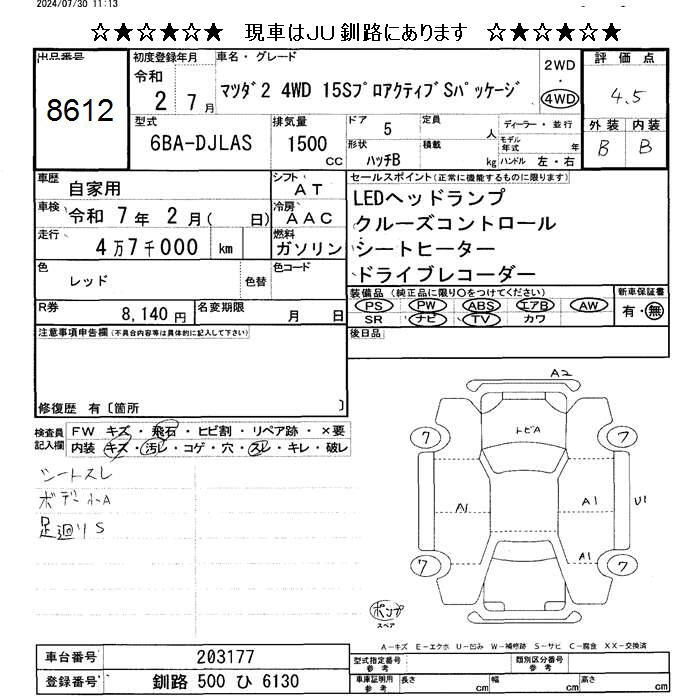 2024/07/30 11:13
☆★☆★☆★☆ 現車はJU釧路にあります ☆★☆★☆★☆
出品番号
8612
初度登録年月
令和
2 7月
車名・グレード
マツダ2 4WD 15Sプロアクティブ Sパッケージ
2WD
・
4WD
評価点
4.5
外装 内装
B B
型式
6BA-DJLAS
排気量
1500
cc
ドア 5
形状
ハッチB
定員
人
積載
kg
ディーラー・並行
モデル年式 年
ハンドル 左・右
車歴
自家用
シフト
AT
車検
令和 7年 2月( 日)
冷房
AAC
走行
4万7千000 km
燃料
ガソリン
色
レッド
色替
色コード
R券
8,140円
名変期限
月 日
セールスポイント(正常に機能するものに限ります)
LEDヘッドランプ
クルーズコントロール
シートヒーター
ドライブレコーダー
装備品(純正品に限り○をつけてください)
PS PW ABS エアB AW
SR ナビ TV カワ
新車保証書
有・無
後日品
注意事項申告欄(不具合内容等は具体的に記入して下さい)
修復歴 有〔箇所 〕
検査員記入欄
FW キズ・飛石・ヒビ割・リペア跡・×要
内装 キズ・汚レ・コゲ・穴・スレ・キレ・破レ
シートスレ
ボデー小A
足廻りS
A2
トビA
7
7
A1
A1
U1
A1
7
7
ポンプ
スペア
A-キズ E-エクボ U-凹み W-補修跡 S-サビ C-腐食 XX-交換済
車台番号 203177
登録番号 釧路 500 ひ 6130
型式指定番号
参考
類別区分番号
参考
車庫証明用
参考
長さ cm 幅 cm 高さ cm